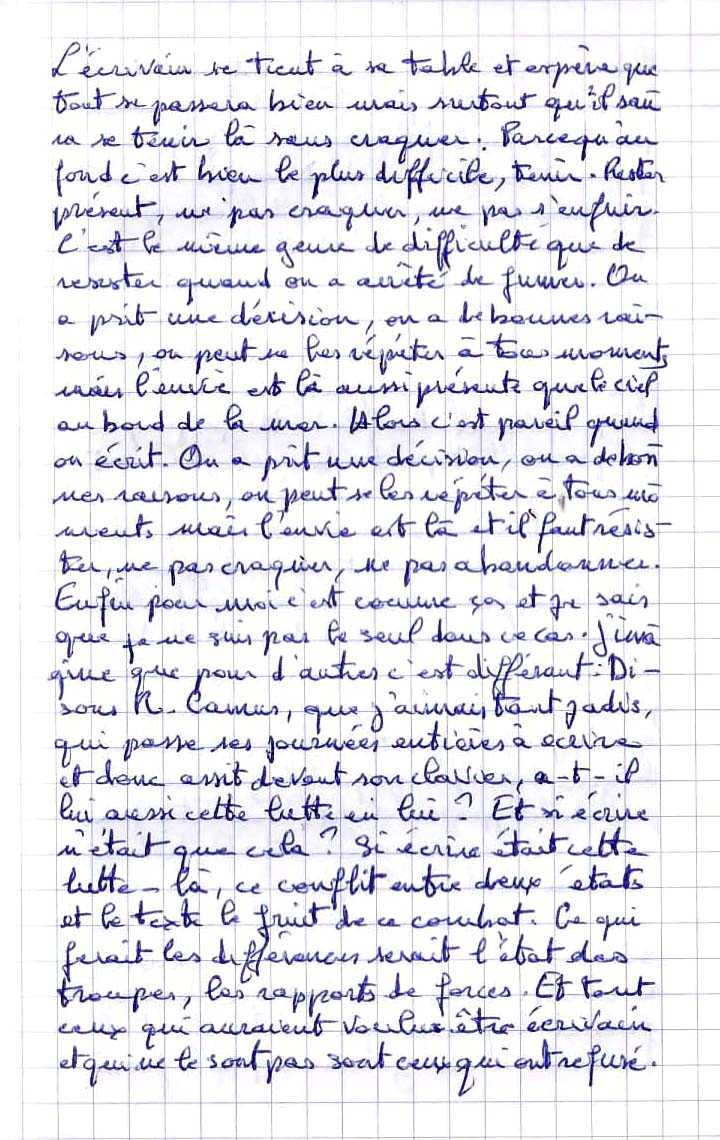 L'écrivain se tient à sa table et espère que
tout se passera bien mais surtout qu'il sau
ra se tenir là sans craquer. Parcequ'au
fond c'est bien le plus difficile, tenir. Rester
présent, ne pas craquer, ne pas s'enfuir.
C'est le même genre de difficulté que de
resister quand on a arrêté de fumer. On
a prit une décision, on a de bonnes rai-
sons, on peut se les répéter à tous moments
mais l'envie est là aussi présente que le ciel
au bord de la mer. Alors c'est pareil quand
on écrit. On a prit une décision, on a de bon
nes raisons, on peut se les répéter à tous mo
ments mais l'envie est là et il faut résis-
ter, ne pas craquer, ne pas abandonner.
Enfin pour moi c'est comme ça et je sais
que je ne suis pas le seul dans ce cas. J'ima
gine que pour d'autres c'est différant : Di-
sons R. Camus, que j'aimais tant jadis,
qui passe ses journées entières à écrire
et donc assit devant son clavier, a-t-il
lui aussi cette lutte en lui ? Et si écrire
n'était que cela ? Si écrire était cette
lutte-là, ce conflit entre deux états
et le texte le fruit de ce combat. Ce qui
ferait les différences serait l'état des
troupes, les rapports de forces. Et tout
ceux qui auraient voulu être écrivain
et qui ne le sont pas sont ceux qui ont refusé.